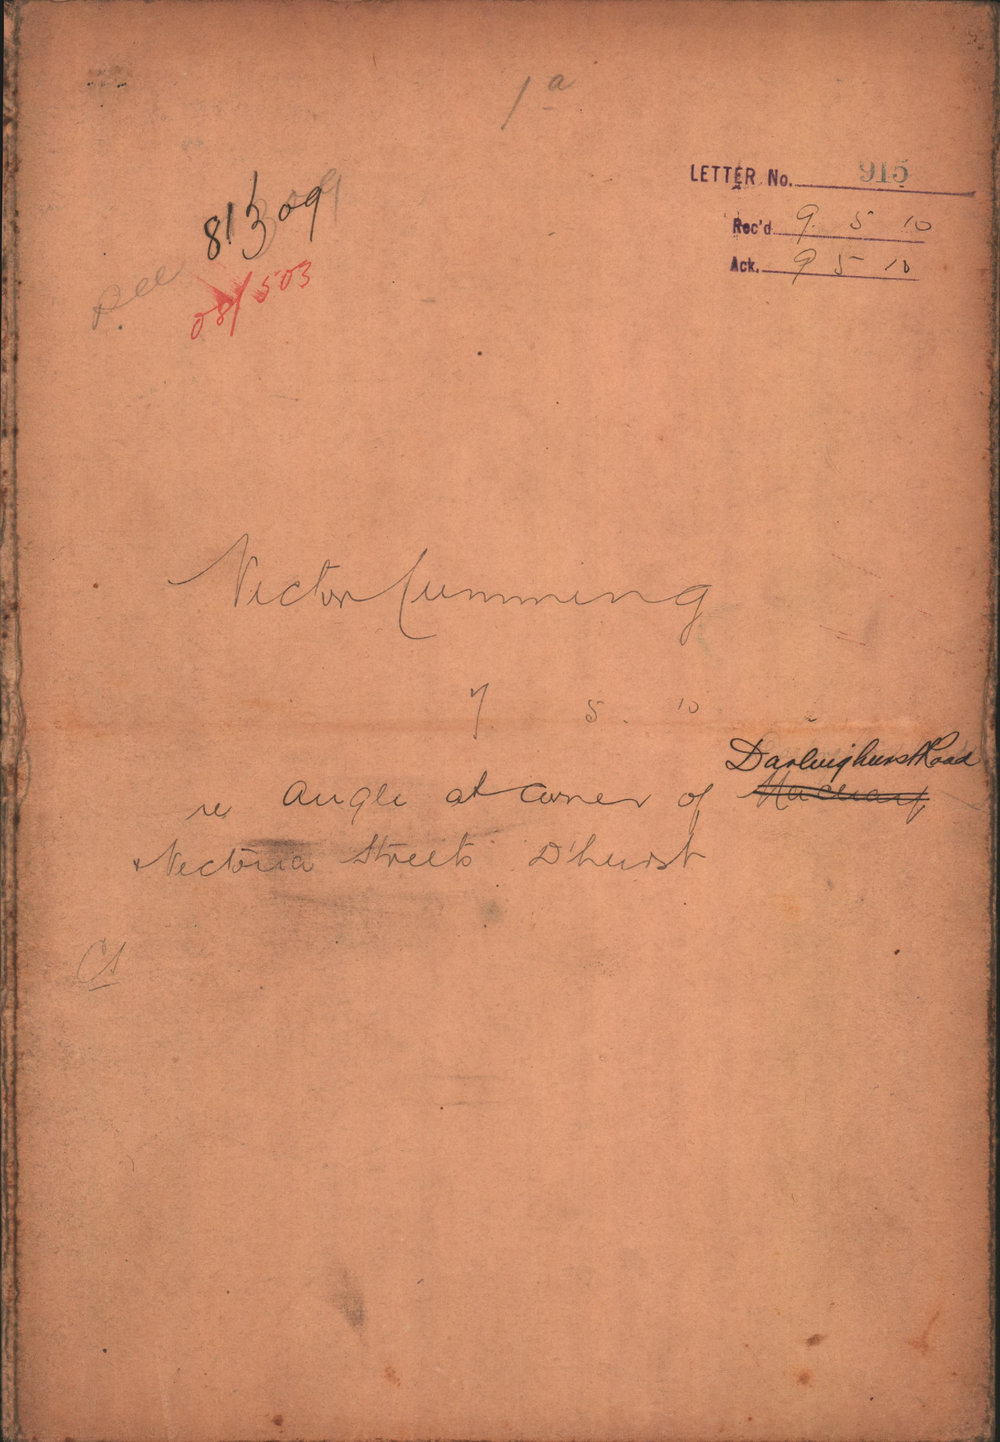 1a
LETTER No. 915
Rec'd 9 5 10
Ack. 9 5 10
813 09
see
08/503
Victor Cumming
7 5 10
Darlinghurst Road
re angle at corner of Macleay
& Victoria Streets D'hurst